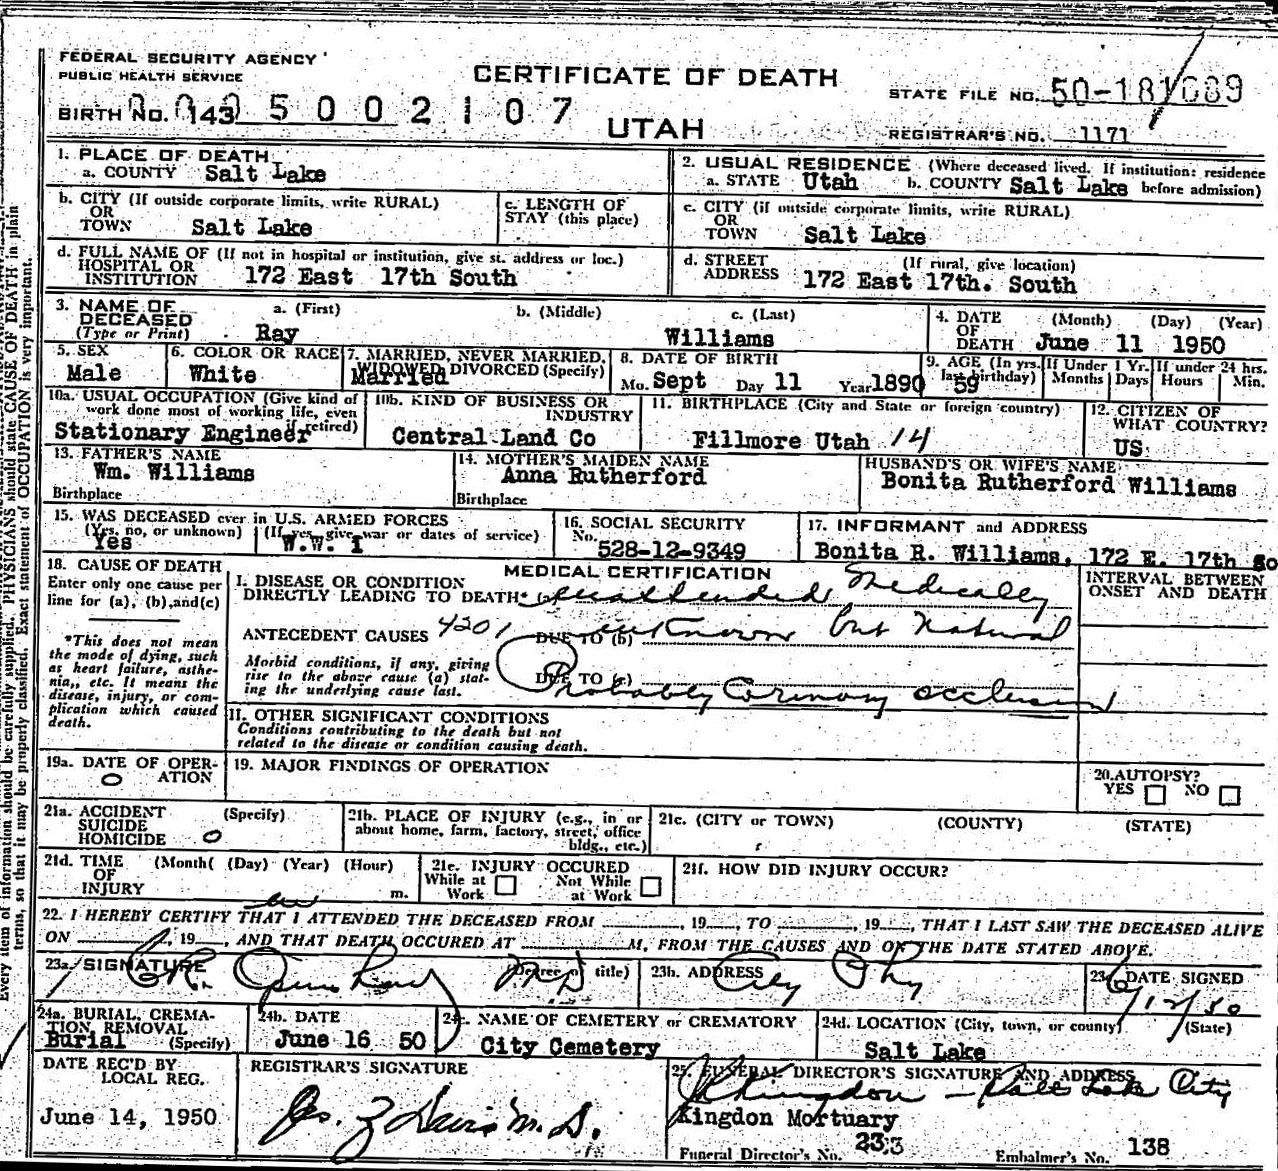 FEDERAL SECURITY AGENCY
PUBLIC HEALTH SERVICE
CERTIFICATE OF DEATH
STATE FILE NO. 50-181689
BIRTH NO. 143 5 0 0 2 1 0 7
UTAH
REGISTRAR'S NO. 1171
1. PLACE OF DEATH
a. COUNTY Salt Lake
2. USUAL RESIDENCE (Where deceased lived. If institution: residence before admission)
a. STATE Utah b. COUNTY Salt Lake
b. CITY (If outside corporate limits, write RURAL)
OR
TOWN Salt Lake
c. LENGTH OF
STAY (this place)
c. CITY (if outside corporate limits, write RURAL)
OR
TOWN Salt Lake
d. FULL NAME OF (If not in hospital or institution, give st. address or loc.)
HOSPITAL OR
INSTITUTION 172 East 17th South
d. STREET (If rural, give location)
ADDRESS 172 East 17th. South
3. NAME OF DECEASED
(Type or Print)
a. (First) b. (Middle) c. (Last)
Ray Williams
4. DATE OF DEATH (Month) (Day) (Year)
June 11 1950
5. SEX
Male
6. COLOR OR RACE
White
7. MARRIED, NEVER MARRIED,
WIDOWED DIVORCED (Specify)
Married
8. DATE OF BIRTH
Mo. Sept Day 11 Year 1890
9. AGE (In yrs. last birthday) 59
If Under 1 Yr. Months Days
If under 24 hrs. Hours Min.
10a. USUAL OCCUPATION (Give kind of
work done most of working life, even
if retired)
Stationary Engineer
10b. KIND OF BUSINESS OR
INDUSTRY
Central Land Co
11. BIRTHPLACE (City and State or foreign country)
Fillmore Utah 14
12. CITIZEN OF
WHAT COUNTRY?
US
13. FATHER'S NAME
Wm. Williams
Birthplace
14. MOTHER'S MAIDEN NAME
Anna Rutherford
Birthplace
HUSBAND'S OR WIFE'S NAME
Bonita Rutherford Williams
15. WAS DECEASED ever in U.S. ARMED FORCES
(Yes, no, or unknown) (If yes, give war or dates of service)
Yes W.W. I
16. SOCIAL SECURITY
No. 528-12-9349
17. INFORMANT and ADDRESS
Bonita R. Williams, 172 E. 17th So
18. CAUSE OF DEATH
Enter only one cause per
line for (a), (b), and (c)
*This does not mean
the mode of dying, such
as heart failure, asthe-
nia,, etc. It means the
disease, injury, or com-
plication which caused
death.
MEDICAL CERTIFICATION
I. DISEASE OR CONDITION
DIRECTLY LEADING TO DEATH* (a) unattended Medically
ANTECEDENT CAUSES 4201 DUE TO (b) unknown but Natural
Morbid conditions, if any, giving
rise to the above cause (a) stat-
ing the underlying cause last.
DUE TO (c) Probably Coronary occlusion
INTERVAL BETWEEN
ONSET AND DEATH
II. OTHER SIGNIFICANT CONDITIONS
Conditions contributing to the death but not
related to the disease or condition causing death.
19a. DATE OF OPER-
ATION
0
19. MAJOR FINDINGS OF OPERATION
20. AUTOPSY?
YES NO
21a. ACCIDENT (Specify)
SUICIDE
HOMICIDE 0
21b. PLACE OF INJURY (e.g., in or
about home, farm, factory, street, office
bldg., etc.)
21c. (CITY or TOWN) (COUNTY) (STATE)
21d. TIME (Month( (Day) (Year) (Hour)
OF
INJURY m.
21e. INJURY OCCURED
While at Work Not While at Work
21f. HOW DID INJURY OCCUR?
22. I HEREBY CERTIFY THAT I ATTENDED THE DECEASED FROM , 19 , TO , 19 , THAT I LAST SAW THE DECEASED ALIVE
ON , 19 , AND THAT DEATH OCCURED AT M, FROM THE CAUSES AND ON THE DATE STATED ABOVE.
23a. SIGNATURE (Degree or title) MD
23b. ADDRESS
City Phy
23c DATE SIGNED
6/12/50
24a. BURIAL, CREMA-
TION, REMOVAL
(Specify)
Burial
24b. DATE
June 16 50
24c. NAME OF CEMETERY or CREMATORY
City Cemetery
24d. LOCATION (City, town, or county) (State)
Salt Lake
DATE REC'D BY
LOCAL REG.
June 14, 1950
REGISTRAR'S SIGNATURE
Jos. Z Davis M.D.
25. FUNERAL DIRECTOR'S SIGNATURE AND ADDRESS
Kingdon - Salt Lake City
Kingdon Mortuary
Funeral Director's No. 233 Embalmer's No. 138
Every item of information should be carefully supplied. PHYSICIANS should state CAUSE OF DEATH in plain
terms, so that it may be properly classified. Exact statement of OCCUPATION is very important.